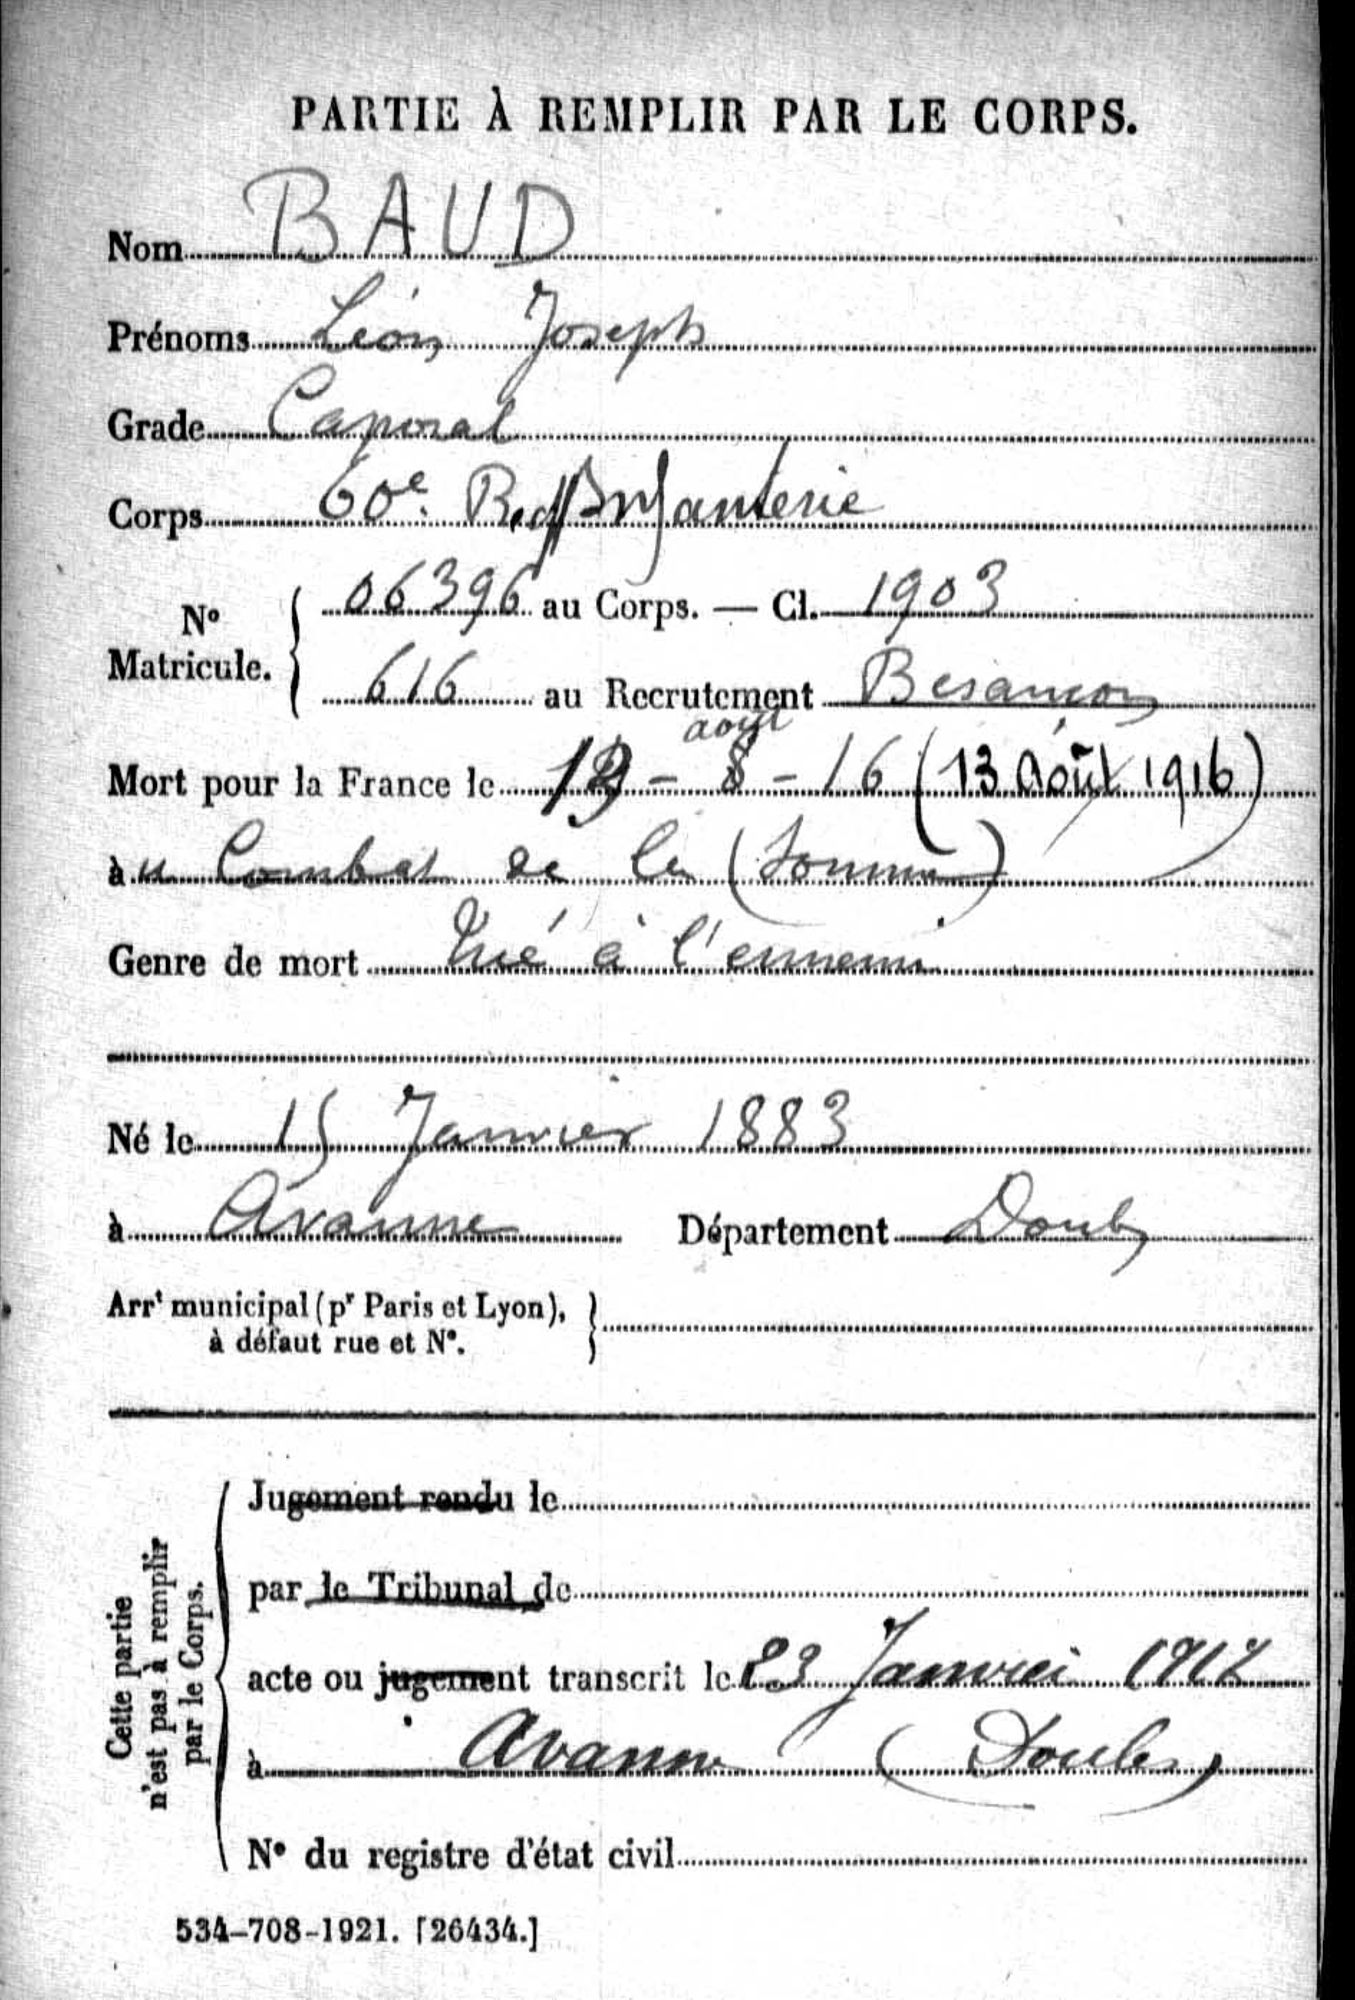 PARTIE À REMPLIR PAR LE CORPS.
Nom BAUD
Prénoms Léon Joseph
Grade Caporal
Corps 60e Rgt d'Infanterie
No Matricule. { 06396 au Corps. — Cl. 1903
616 au Recrutement Besançon
août
Mort pour la France le 13 - 8 - 16 (13 Août 1916)
à u Combat de la (Somme)
Genre de mort Tué à l'ennemi
Né le 15 Janvier 1883
à Avanne Département Doubs
Arrt municipal (pr Paris et Lyon), à défaut rue et No. }
Cette partie n'est pas à remplir par le Corps.
Jugement rendu le
par le Tribunal de
acte ou jugement transcrit le 23 Janvier 1917
à Avanne (Doubs)
No du registre d'état civil
534-708-1921. [26434.]